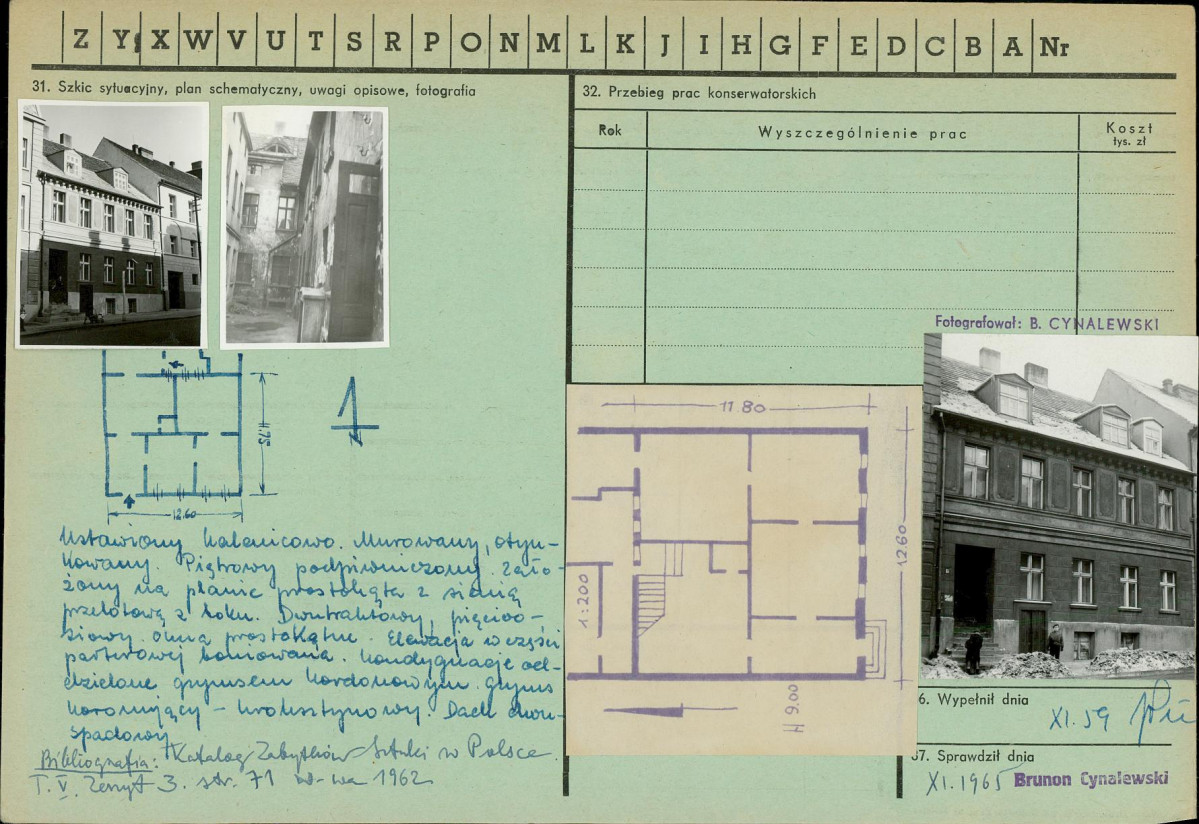 Z Y X W V U T S R P O N M L K J I H G F E D C B A Nr
31. Szkic sytuacyjny, plan schematyczny, uwagi opisowe, fotografia
11.75
12.60
Ustawiony kalenicowo. Murowany, otyn-
kowany. Piętrowy podpiwniczony. Zało-
żony na planie prostokąta z sienią
przelotową z boku. Dwutraktowy, pięcioo-
siowy. okna prostokątne. Elewacja w części
parterowej boniowana. Kondygnacje od-
dzielone gzymsem kordonowym. gzyms
koronujący – kroksztynowy. Dach dwu-
spadowy
Bibliografia: Katalog Zabytków Sztuki w Polsce.
T. V. Zeszyt 3. str. 71 W-wa 1962
32. Przebieg prac konserwatorskich
Rok
Wyszczególnienie prac
Koszt
tys. zł
Fotografował: B. CYNALEWSKI
11.80
12.60
1:200
H 9.00
6. Wypełnił dnia
XI.59
37. Sprawdził dnia
XI.1965 Brunon Cynalewski